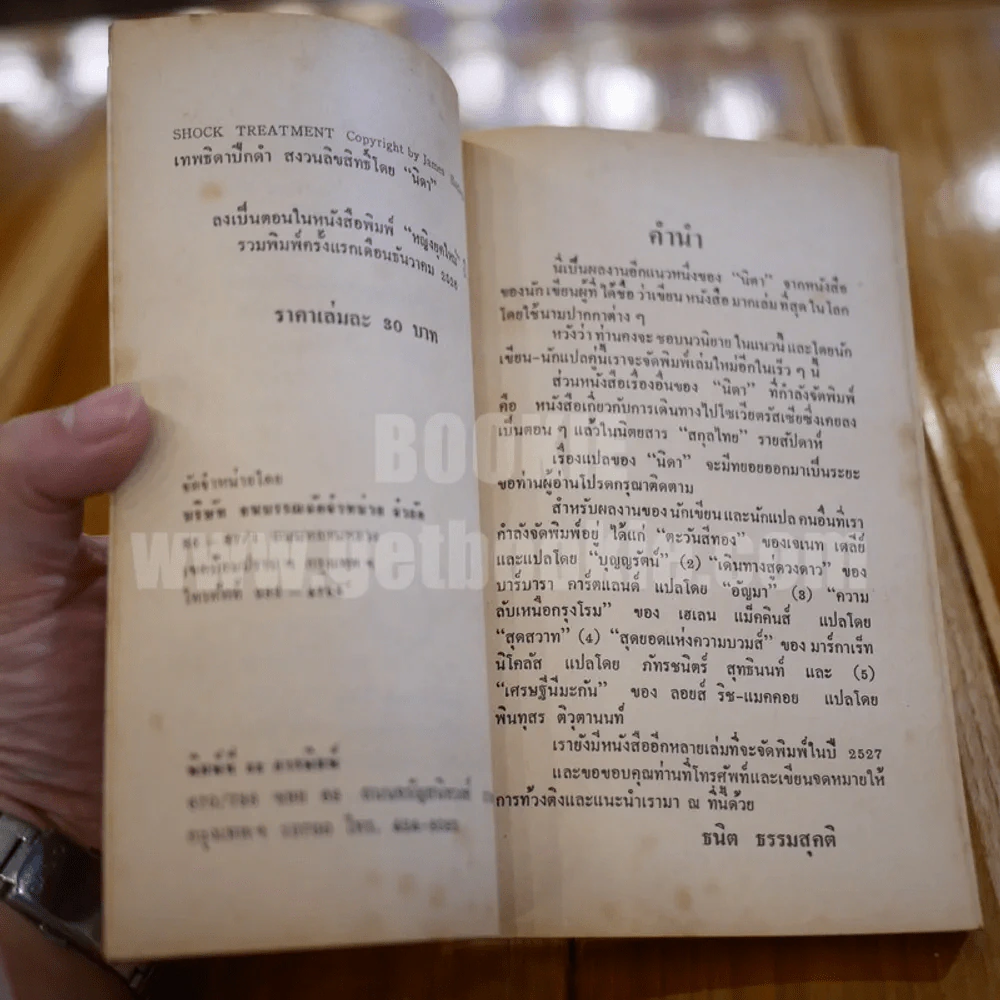 SHOCK TREATMENT Copyright by James
เทพธิดาปีกดำ สงวนลิขสิทธิ์โดย “นิดา”
ลงเป็นตอนในหนังสือพิมพ์ “หญิงยุคใหม่”
รวมพิมพ์ครั้งแรกเดือนธันวาคม 2526
ราคาเล่มละ 30 บาท
จัดจำหน่ายโดย
บริษัท
จำกัด
คำนำ
นี่เป็นผลงานอีกแนวหนึ่งของ “นิดา” จากหนังสือ
ของนักเขียนผู้ที่ได้ชื่อว่าเขียนหนังสือมากเล่มที่สุดในโลก
โดยใช้นามปากกาต่าง ๆ
หวังว่าท่านคงจะชอบนวนิยายในแนวนี้และโดยนัก
เขียน-นักแปลคู่นี้เราจะจัดพิมพ์เล่มใหม่อีกในเร็ว ๆ นี้
ส่วนหนังสือเรื่องอื่นของ “นิดา” ที่กำลังจัดพิมพ์
คือ หนังสือเกี่ยวกับการเดินทางไปโซเวียตรัสเซียซึ่งเคยลง
เป็นตอน ๆ แล้วในนิตยสาร “สกุลไทย” รายสัปดาห์
เรื่องแปลของ “นิดา” จะมีทยอยออกมาเป็นระยะ
ขอท่านผู้อ่านโปรดกรุณาติดตาม
สำหรับผลงานของนักเขียนและนักแปลคนอื่นที่เรา
กำลังจัดพิมพ์อยู่ ได้แก่ “ตะวันสีทอง” ของเจเนท เดลีย์
และแปลโดย “บุญญรัตน์” (2) “เดินทางสู่ดวงดาว” ของ
บาร์บารา คาร์ตแลนด์ แปลโดย “อัญมา” (3) “ความ
ลับเหนือกรุงโรม” ของ เฮเลน แม็คคินส์ แปลโดย
“สุดสวาท” (4) “สุดยอดแห่งความบวมส์” ของ มาร์กาเร็ท
นิโคลัส แปลโดย ภัทรชนิตร์ สุทธินนท์ และ (5)
“เศรษฐีนีมะกัน” ของ ลอยส์ ริช-แมคคอย แปลโดย
พินทุสร ติวุตานนท์
เรายังมีหนังสืออีกหลายเล่มที่จะจัดพิมพ์ในปี 2527
และขอขอบคุณท่านที่โทรศัพท์และเขียนจดหมายให้
การท้วงติงและแนะนำเรามา ณ ที่นี้ด้วย
ธนิต ธรรมสุคติ